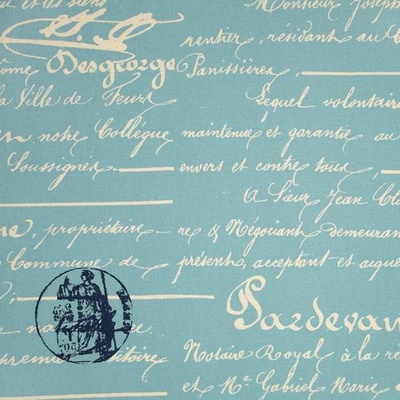 et les siens Monsieur Joseph
rentier, résidant au C
ôme Desgeorge Panissières,
la Ville de Feurs Lequel volontaire
en notre Collégue maintenue et garantie au
Soussignes envers et contre tous,
A Sieur Jean Cl
ne, propriétaire re & Négociant demeuran
Commune de présent, acceptant et aqué
Pardevan
premie itoire Notaire Royal à la ré
et Me Gabriel Marie